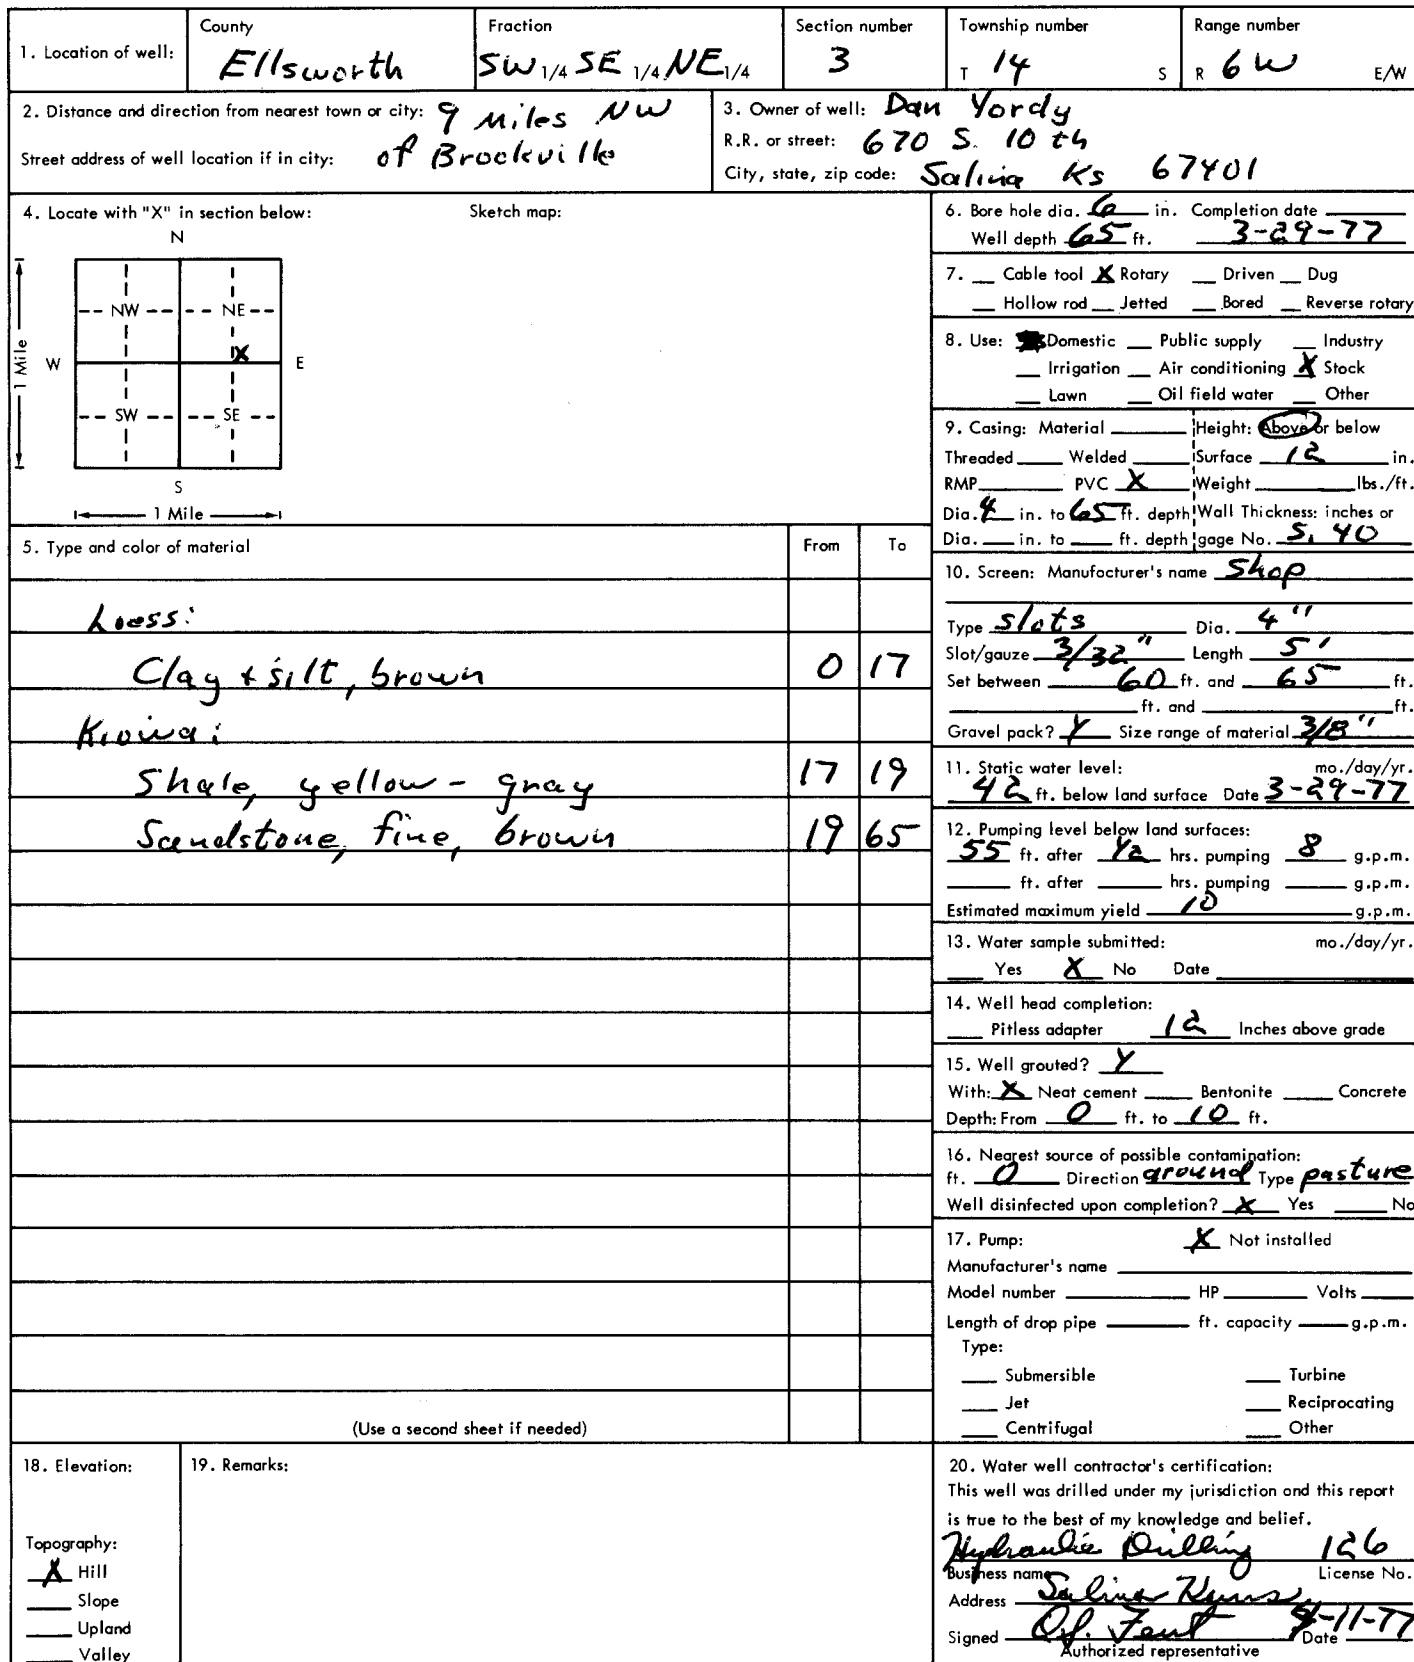 1. Location of well: County Ellsworth Fraction SW 1/4 SE 1/4 NE 1/4 Section number 3 Township number T 14 S Range number R 6 W E/W
2. Distance and direction from nearest town or city: 9 miles NW
Street address of well location if in city: of Brookville
3. Owner of well: Dan Yordy
R.R. or street: 670 S. 10 th
City, state, zip code: Salina Ks 67401
4. Locate with "X" in section below: Sketch map:
N
NW NE
1 Mile W X E
SW SE
S
1 Mile
5. Type and color of material From To
Loess:
Clay + silt, brown 0 17
Kiowa:
Shale, yellow - gray 17 19
Sandstone, fine, brown 19 65
(Use a second sheet if needed)
6. Bore hole dia. 6 in. Completion date
Well depth 65 ft. 3-29-77
7. Cable tool X Rotary Driven Dug
Hollow rod Jetted Bored Reverse rotary
8. Use: Domestic Public supply Industry
Irrigation Air conditioning X Stock
Lawn Oil field water Other
9. Casing: Material Height: Above or below
Threaded Welded Surface 12 in.
RMP PVC X Weight lbs./ft.
Dia. 4 in. to 65 ft. depth Wall Thickness: inches or
Dia. in. to ft. depth gage No. S. 40
10. Screen: Manufacturer's name Shop
Type slots Dia. 4"
Slot/gauze 3/32" Length 5'
Set between 60 ft. and 65 ft.
ft. and ft.
Gravel pack? Y Size range of material 3/8"
11. Static water level: mo./day/yr.
42 ft. below land surface Date 3-29-77
12. Pumping level below land surfaces:
55 ft. after 1/2 hrs. pumping 8 g.p.m.
ft. after hrs. pumping g.p.m.
Estimated maximum yield 10 g.p.m.
13. Water sample submitted: mo./day/yr.
Yes X No Date
14. Well head completion:
Pitless adapter 12 Inches above grade
15. Well grouted? Y
With: X Neat cement Bentonite Concrete
Depth: From 0 ft. to 10 ft.
16. Nearest source of possible contamination:
ft. 0 Direction around Type pasture
Well disinfected upon completion? X Yes No
17. Pump: X Not installed
Manufacturer's name
Model number HP Volts
Length of drop pipe ft. capacity g.p.m.
Type:
Submersible Turbine
Jet Reciprocating
Centrifugal Other
18. Elevation:
Topography:
X Hill
Slope
Upland
Valley
19. Remarks:
20. Water well contractor's certification:
This well was drilled under my jurisdiction and this report
is true to the best of my knowledge and belief.
Hydraulic Drilling 126
Business name License No.
Address Salina Kans
Signed Fent Date 4-11-77
Authorized representative